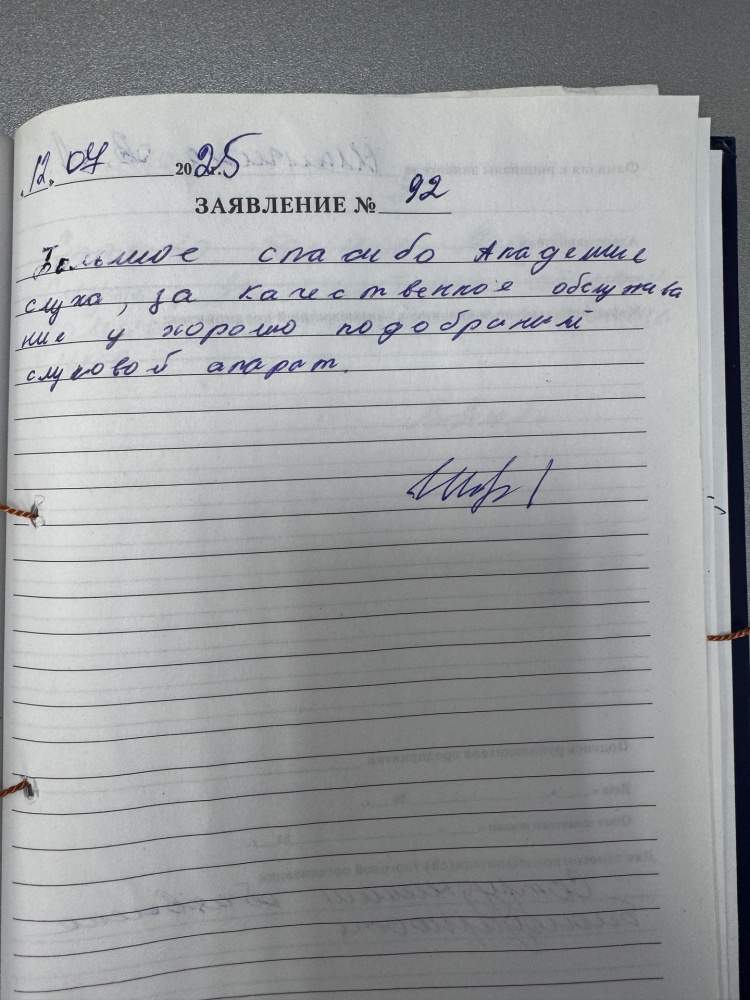 12. 07 2025г.
ЗАЯВЛЕНИЕ № 92
Большое спасибо Академие
слуха, за качественное обслужива
ние у хорошо подобраный
слуховой апарат.